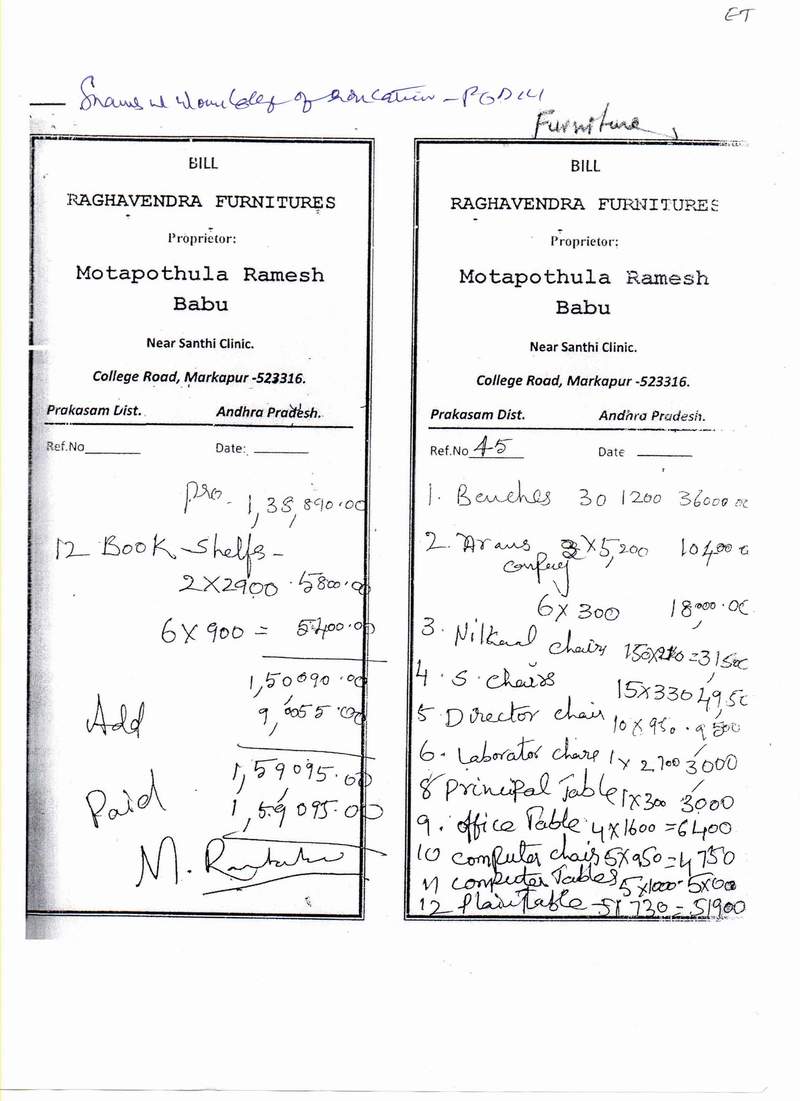 ET
of Education - PGDM
Furniture
BILL
RAGHAVENDRA FURNITURES
Proprietor:
Motapothula Ramesh
Babu
Near Santhi Clinic.
College Road, Markapur -523316.
Prakasam Dist. Andhra Pradesh.
Ref.No Date:
1,38,890.00
12 Book Shelfs -
2X2900 . 5800.00
6X900 = 5400.00
1,50090.00
Add 9,0055.00
1,59095.00
Paid 1,59095.00
M.
BILL
RAGHAVENDRA FURNITURES
Proprietor:
Motapothula Ramesh
Babu
Near Santhi Clinic.
College Road, Markapur -523316.
Prakasam Dist. Andhra Pradesh.
Ref.No 45 Date
1. Benches 30 1200 36000.00
2. X5,200 10400
6X300 18000.00
3. Nilkamal chairs
4. S. chairs 15X330 4950
5. Director chair 10X950. 9500
6. 1X2700 3000
8 Principal Table 1X300 3000
9. office Table 4X1600 =6400
10 computer chair 5X950=4750
11 computer Tables 5X1000
12 Plain Table